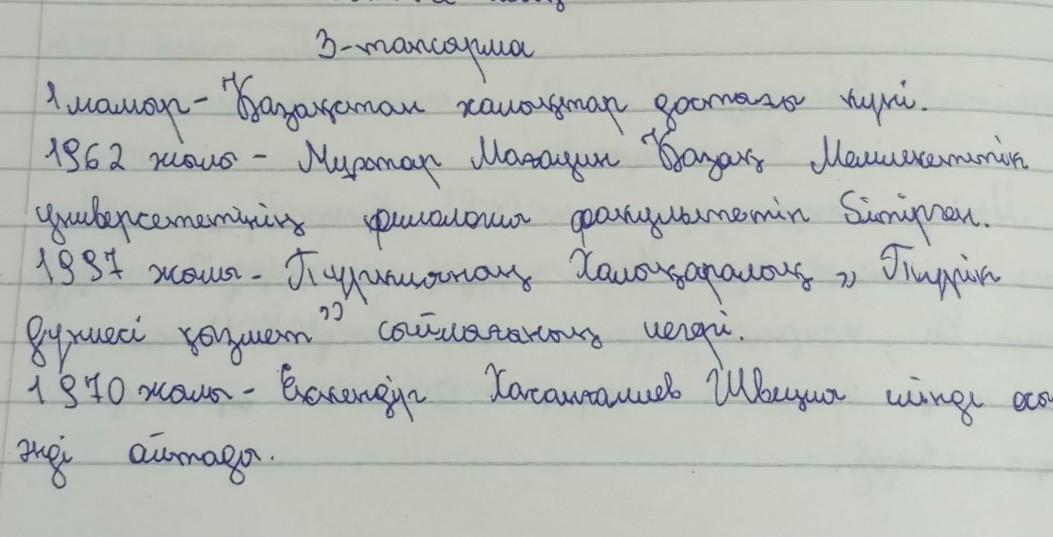 3-тапсырма
1 мамыр - Қазақстан халықтар достығы күні.
1962 жылы - Мұхтар Мағауин Қазақ Мемлекеттік
университетінің филология факультетін бітірген.
1997 жылы - Түркияның Халықаралық „Түрік
дүниесі қызмет” сыйлығының иегері.
1970 жылы - Ескендір Хасанғалиев Швеция елінде осы
әнді айтады.